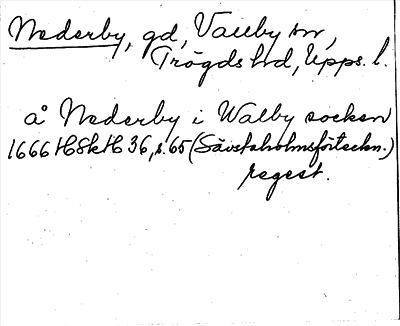 Nederby, gd, Vallby sn,
Trögds hd, Upps. l.
å Nederby i Walby socken
1666 HSH 36, s. 65 (Sävstaholmsförteckn.)
regest.